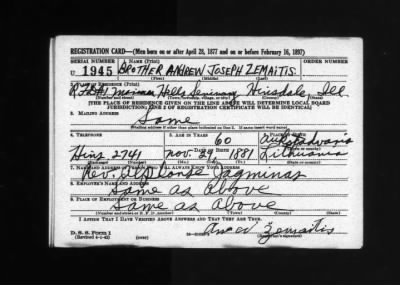 REGISTRATION CARD—(Men born on or after April 28, 1877 and on or before February 16, 1897)
SERIAL NUMBER 1. NAME (Print) ORDER NUMBER
U 1945 BROTHER ANDREW JOSEPH ZEMAITIS
(First) (Middle) (Last)
2. PLACE OF RESIDENCE (Print)
Hills Seminary Hinsdale, Ill
(Number and street) (Town, township, village, or city) (County) (State)
[THE PLACE OF RESIDENCE GIVEN ON THE LINE ABOVE WILL DETERMINE LOCAL BOARD
JURISDICTION; LINE 2 OF REGISTRATION CERTIFICATE WILL BE IDENTICAL]
3. MAILING ADDRESS
Same
[Mailing address if other than place indicated on line 2. If same insert word same]
4. TELEPHONE 5. AGE IN YEARS 6. PLACE OF BIRTH
60
DATE OF BIRTH
Hins. 2741 Nov. 29 1881 Lithuania
(Exchange) (Number) (Mo.) (Day) (Yr.) (State or country)
7. NAME AND ADDRESS OF PERSON WHO WILL ALWAYS KNOW YOUR ADDRESS
Rev. Alphonse
Same as above
8. EMPLOYER'S NAME AND ADDRESS
9. PLACE OF EMPLOYMENT OR BUSINESS
Same as above
(Number and street or R. F. D. number) (Town) (County) (State)
I AFFIRM THAT I HAVE VERIFIED ABOVE ANSWERS AND THAT THEY ARE TRUE.
D. S. S. Form 1
(Revised 4-1-42)
Zemaitis
(Registrant's signature)